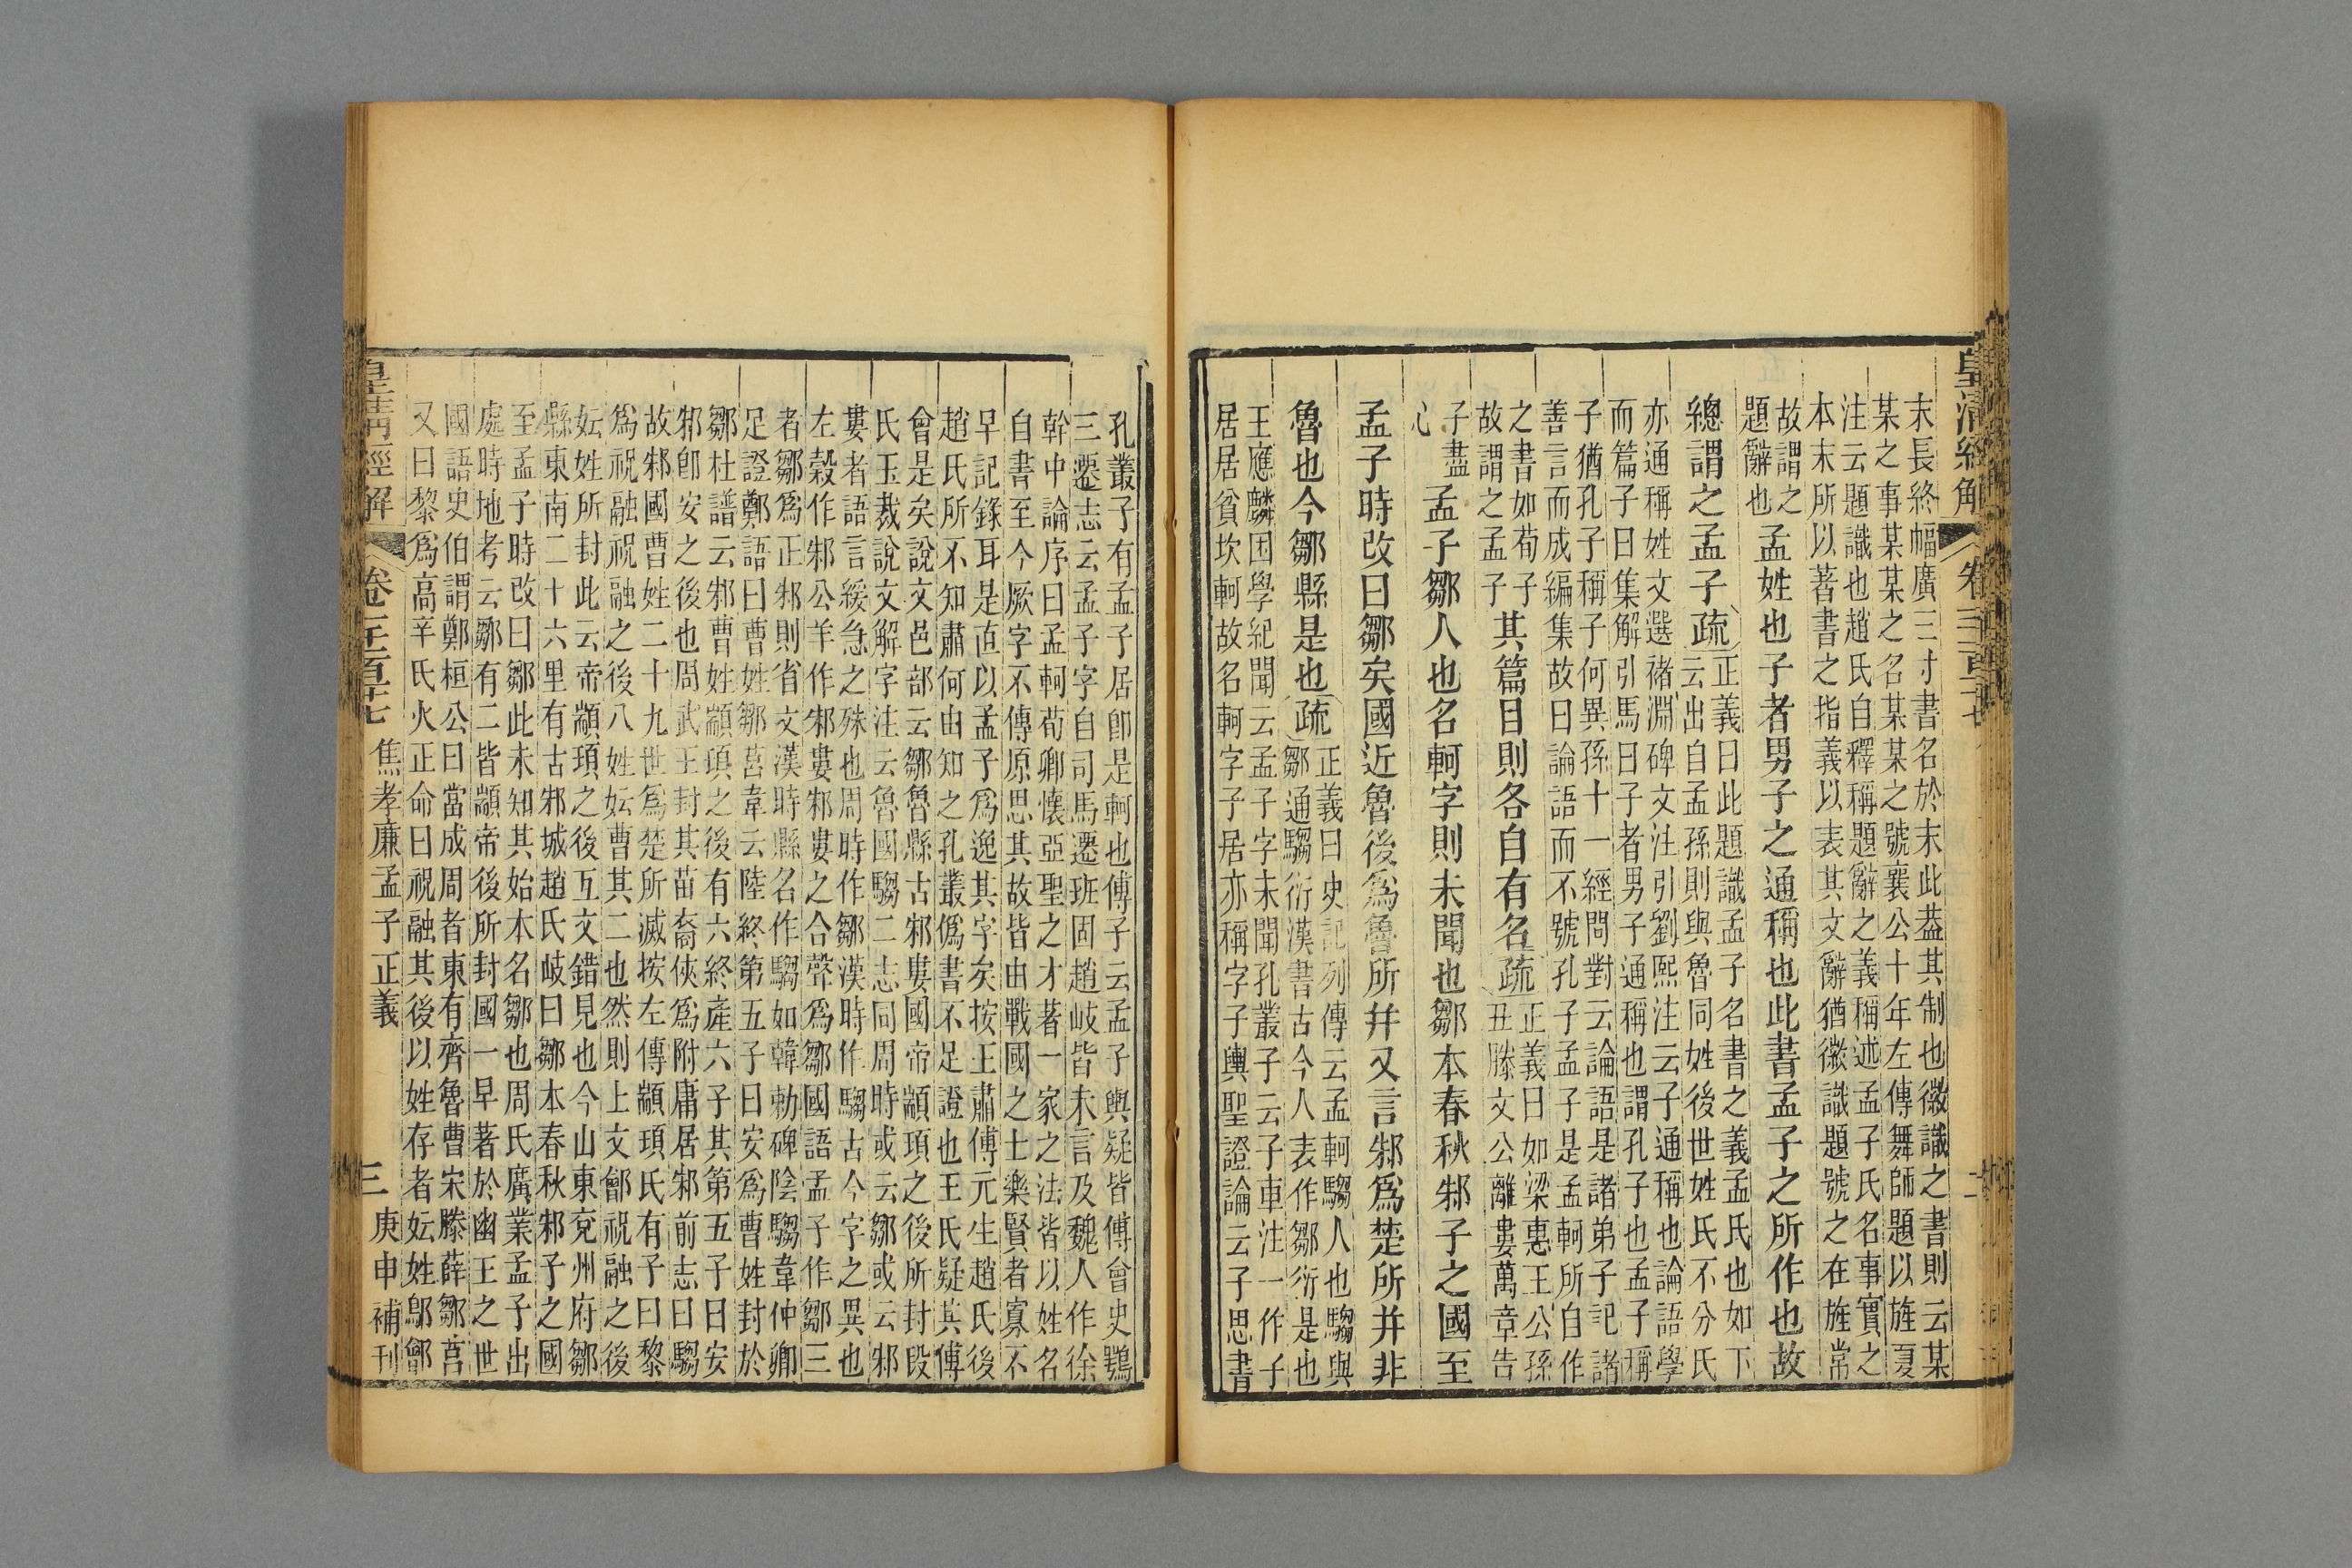 皇清經解
卷三百十七
末長終幅廣三寸書名於末此葢其制也徽識之書則云某
某之事某某之名某某之號襄公十年左傳舞師題以旌夏
注云題識也趙氏自釋稱題辭之義稱述孟子氏名事實之
本末所以著書之指義以表其文辭猶徽識題號之在旌常
故謂之
題辭也
孟姓也子者男子之通稱也此書孟子之所作也故
總謂之孟子疏
正義曰此題識孟子名書之義孟氏也如下
云出自孟孫則與魯同姓後世姓氏不分氏
亦通稱姓文選褚淵碑文注引劉熙注云子通稱也論語學
而篇子曰集解引馬曰子者男子通稱也謂孔子也孟子稱
子猶孔子稱子何異孫十一經問對云論語是諸弟子記諸
善言而成編集故曰論語而不號孔子孟子是孟軻所自作
之書如荀子
故謂之孟子
其篇目則各自有名疏
正義曰如梁惠王公孫
丑滕文公離婁萬章告
子盡
心
孟子鄒人也名軻字則未聞也鄒本春秋邾子之國至
孟子時改曰鄒矣國近魯後爲魯所幷又言邾爲楚所并非
魯也今鄒縣是也疏
正義曰史記列傳云孟軻騶人也騶與
鄒通騶衍漢書古今人表作鄒衍是也
王應麟困學紀聞云孟子字未聞孔叢子云子車注一作子
居居貧坎軻故名軻字子居亦稱字子輿聖證論云子思書
孔叢子有孟子居卽是軻也傅子云孟子輿疑皆傅會史鶚
三遷志云孟子字自司馬遷班固趙岐皆未言及魏人作徐
幹中論序曰孟軻荀卿懷亞聖之才著一家之法皆以姓名
自書至今厥字不傳原思其故皆由戰國之士樂賢者寡不
早記錄耳是直以孟子爲逸其字矣按王肅傅元生趙氏後
趙氏所不知肅何由知之孔叢僞書不足證也王氏疑其傅
會是矣說文邑部云鄒魯縣古邾婁國帝顓頊之後所封段
氏玉裁說文解字注云魯國騶二志同周時或云鄒或云邾
婁者語言綏急之殊也周時作鄒漢時作騶古今字之異也
左穀作邾公羊作邾婁邾婁之合聲爲鄒國語孟子作鄒三
者鄒爲正邾則省文漢時縣名作騶如韓勑碑陰騶韋仲卿
足證鄭語曰曹姓鄒莒韋云陸終第五子曰安爲曹姓封於
鄒杜譜云邾曹姓顓頊之後有六終產六子其第五子曰安
邾卽安之後也周武王封其苗裔俠爲附庸居邾前志曰騶
故邾國曹姓二十九世爲楚所滅按左傳顓頊氏有子曰黎
爲祝融祝融之後八姓妘曹其二也然則上文鄶祝融之後
妘姓所封此云帝顓頊之後互文錯見也今山東兗州府鄒
縣東南二十六里有古邾城趙氏岐曰鄒本春秋邾子之國
至孟子時改曰鄒此未知其始本名鄒也周氏廣業孟子出
處時地考云鄒有二皆顓帝後所封國一早著於幽王之世
國語史伯謂鄭桓公曰當成周者東有齊魯曹宋滕薛鄒莒
又曰黎爲高辛氏火正命曰祝融其後以姓存者妘姓鄔鄶
皇清經解
卷三百十七
焦孝廉孟子正義
三
庚申補刊